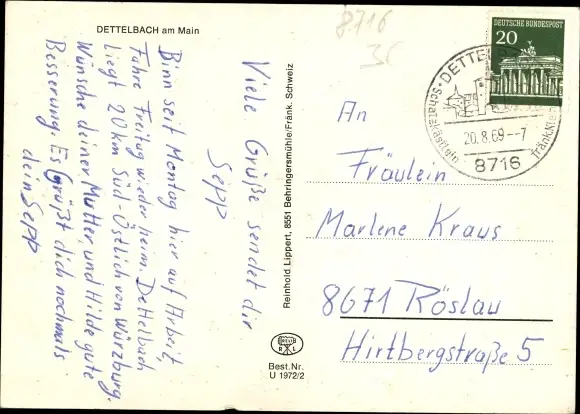 DETTELBACH am Main
8716
35
Viele Grüße sendet dir
Sepp
Binn seit Montag hier auf Arbeit
Fahre Freitag wieder heim. Dettelbach
liegt 20 km Süd Östlich von Würzburg.
Wünsche deiner Mutter, und Hilde gute
Besserung. Es Grüßt dich nochmals
dein Sepp
Reinhold Lippert, 8551 Behringersmühle/Fränk. Schweiz
Best.Nr.
U 1972/2
DEUTSCHE BUNDESPOST
20
DETTEL
Schatzkästlein
20.8.69--7
8716
An
Fräulein
Marlene Kraus
8671 Röslau
Hirtbergstraße 5